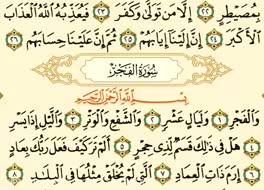 بِمُصَيْطِرٍ ٢٢ إِلَّا مَن تَوَلَّىٰ وَكَفَرَ ٢٣ فَيُعَذِّبُهُ ٱللَّهُ ٱلْعَذَابَ
ٱلْأَكْبَرَ ٢٤ إِنَّ إِلَيْنَآ إِيَابَهُمْ ٢٥ ثُمَّ إِنَّ عَلَيْنَا حِسَابَهُم ٢٦
سُورَةُ الفَجْرِ
بِسْمِ ٱللَّهِ ٱلرَّحْمَٰنِ ٱلرَّحِيمِ
وَٱلْفَجْرِ ١ وَلَيَالٍ عَشْرٍ ٢ وَٱلشَّفْعِ وَٱلْوَتْرِ ٣ وَٱلَّيْلِ إِذَا يَسْرِ
٤ هَلْ فِى ذَٰلِكَ قَسَمٌ لِّذِى حِجْرٍ ٥ أَلَمْ تَرَ كَيْفَ فَعَلَ رَبُّكَ بِعَادٍ
٦ إِرَمَ ذَاتِ ٱلْعِمَادِ ٧ ٱلَّتِى لَمْ يُخْلَقْ مِثْلُهَا فِى ٱلْبِلَٰدِ ٨